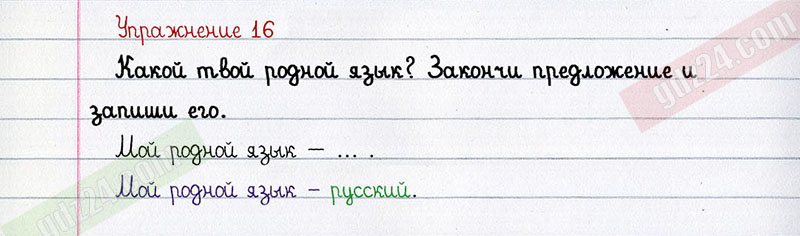 Упражнение 16
Какой твой родной язык? Закончи предложение и
запиши его.
Мой родной язык — ... .
Мой родной язык – русский.
gdz24.com
gdz24.com